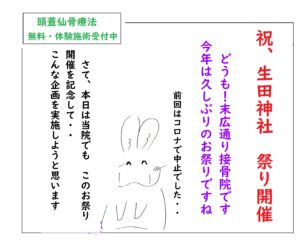 頭蓋仙骨療法
無料・体験施術受付中
祝、生田神社　祭り開催
どうも！末広通り接骨院です
今年は久しぶりのお祭りですね
前回はコロナで中止でした・・
さて、本日は当院でも　このお祭り
開催を記念して・・
こんな企画を実施しようと思います